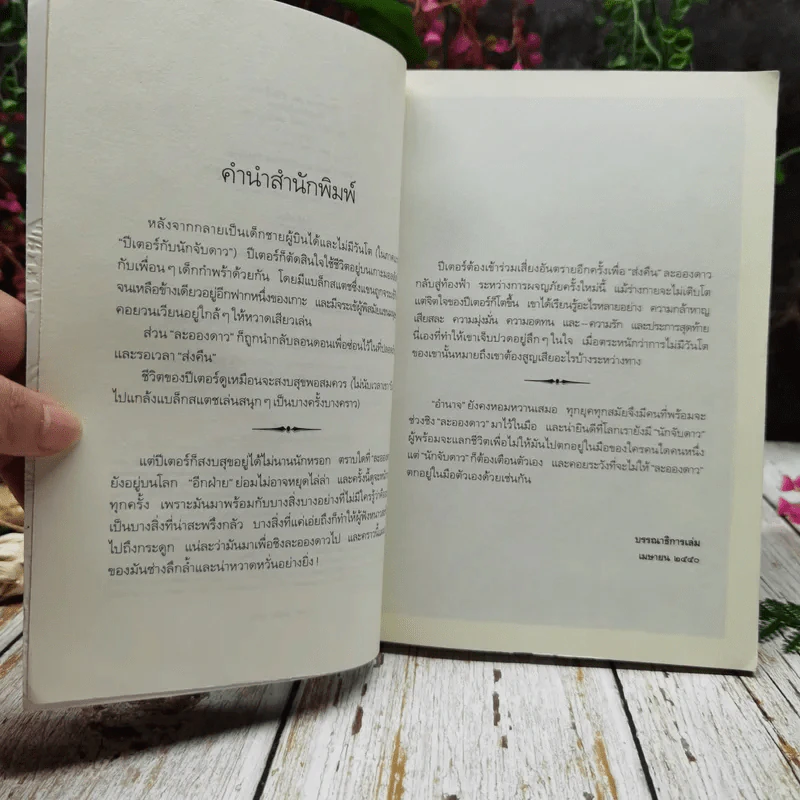 คำนำสำนักพิมพ์
หลังจากกลายเป็นเด็กชายผู้บินได้และไม่มีวันโต
"ปีเตอร์กับนักจับดาว") ปีเตอร์ก็ตัดสินใจใช้ชีวิตอยู่บนเกาะ
กับเพื่อนๆ เด็กกำพร้าด้วยกัน โดยมีแบล็กสแตชซึ่งแขนถูก
จนเหลือข้างเดียวอยู่อีกฟากหนึ่งของเกาะ และมีจระเข้ผู้พิสมัยแขน
คอยวนเวียนอยู่ใกล้ๆ ให้หวาดเสียวเล่น
ส่วน "ละอองดาว" ก็ถูกนำกลับลอนดอนเพื่อซ่อนไว้ในที่
และรอเวลา "ส่งคืน"
ชีวิตของปีเตอร์ดูเหมือนจะสงบสุขพอสมควร (ไม่นับเวลา
ไปแกล้งแบล็กสแตชเล่นสนุกๆ เป็นบางครั้งบางคราว)
แต่ปีเตอร์ก็สงบสุขอยู่ได้ไม่นานนักหรอก ตราบใดที่ "ละออง
ยังอยู่บนโลก "อีกฝ่าย" ย่อมไม่อาจหยุดไล่ล่า และครั้งนี้ดู
ทุกครั้ง เพราะมันมาพร้อมกับบางสิ่งบางอย่างที่ไม่มีใครรู้ว่า
เป็นบางสิ่งที่น่าสะพรึงกลัว บางสิ่งที่แค่เอ่ยถึงก็ทำให้ผู้ฟัง
ไปถึงกระดูก แน่ละว่ามันมาเพื่อชิงละอองดาวไป และคราวนี้
ของมันช่างลึกล้ำและน่าหวาดหวั่นอย่างยิ่ง!
ปีเตอร์ต้องเข้าร่วมเสี่ยงอันตรายอีกครั้งเพื่อ "ส่งคืน" ละอองดาว
กลับสู่ท้องฟ้า ระหว่างการผจญภัยครั้งใหม่นี้ แม้ร่างกายจะไม่เติบโต
แต่จิตใจของปีเตอร์ก็โตขึ้น เขาได้เรียนรู้อะไรหลายอย่าง ความกล้าหาญ
เสียสละ ความมุ่งมั่น ความอดทน และ–ความรัก และประการสุดท้าย
นี่เองที่ทำให้เขาเจ็บปวดอยู่ลึกๆ ในใจ เมื่อตระหนักว่าการไม่มีวันโต
ของเขานั้นหมายถึงเขาต้องสูญเสียอะไรบ้างระหว่างทาง
"อำนาจ" ยังคงหอมหวานเสมอ ทุกยุคทุกสมัยจึงมีคนที่พร้อมจะ
ช่วงชิง "ละอองดาว" มาไว้ในมือ และน่ายินดีที่โลกเรายังมี "นักจับดาว"
ผู้พร้อมจะแลกชีวิตเพื่อไม่ให้มันไปตกอยู่ในมือของใครคนใดคนหนึ่ง
แต่ "นักจับดาว" ก็ต้องเตือนตัวเอง และคอยระวังที่จะไม่ให้ "ละอองดาว"
ตกอยู่ในมือตัวเองด้วยเช่นกัน
บรรณาธิการเล่ม
เมษายน ๒๕๕๐